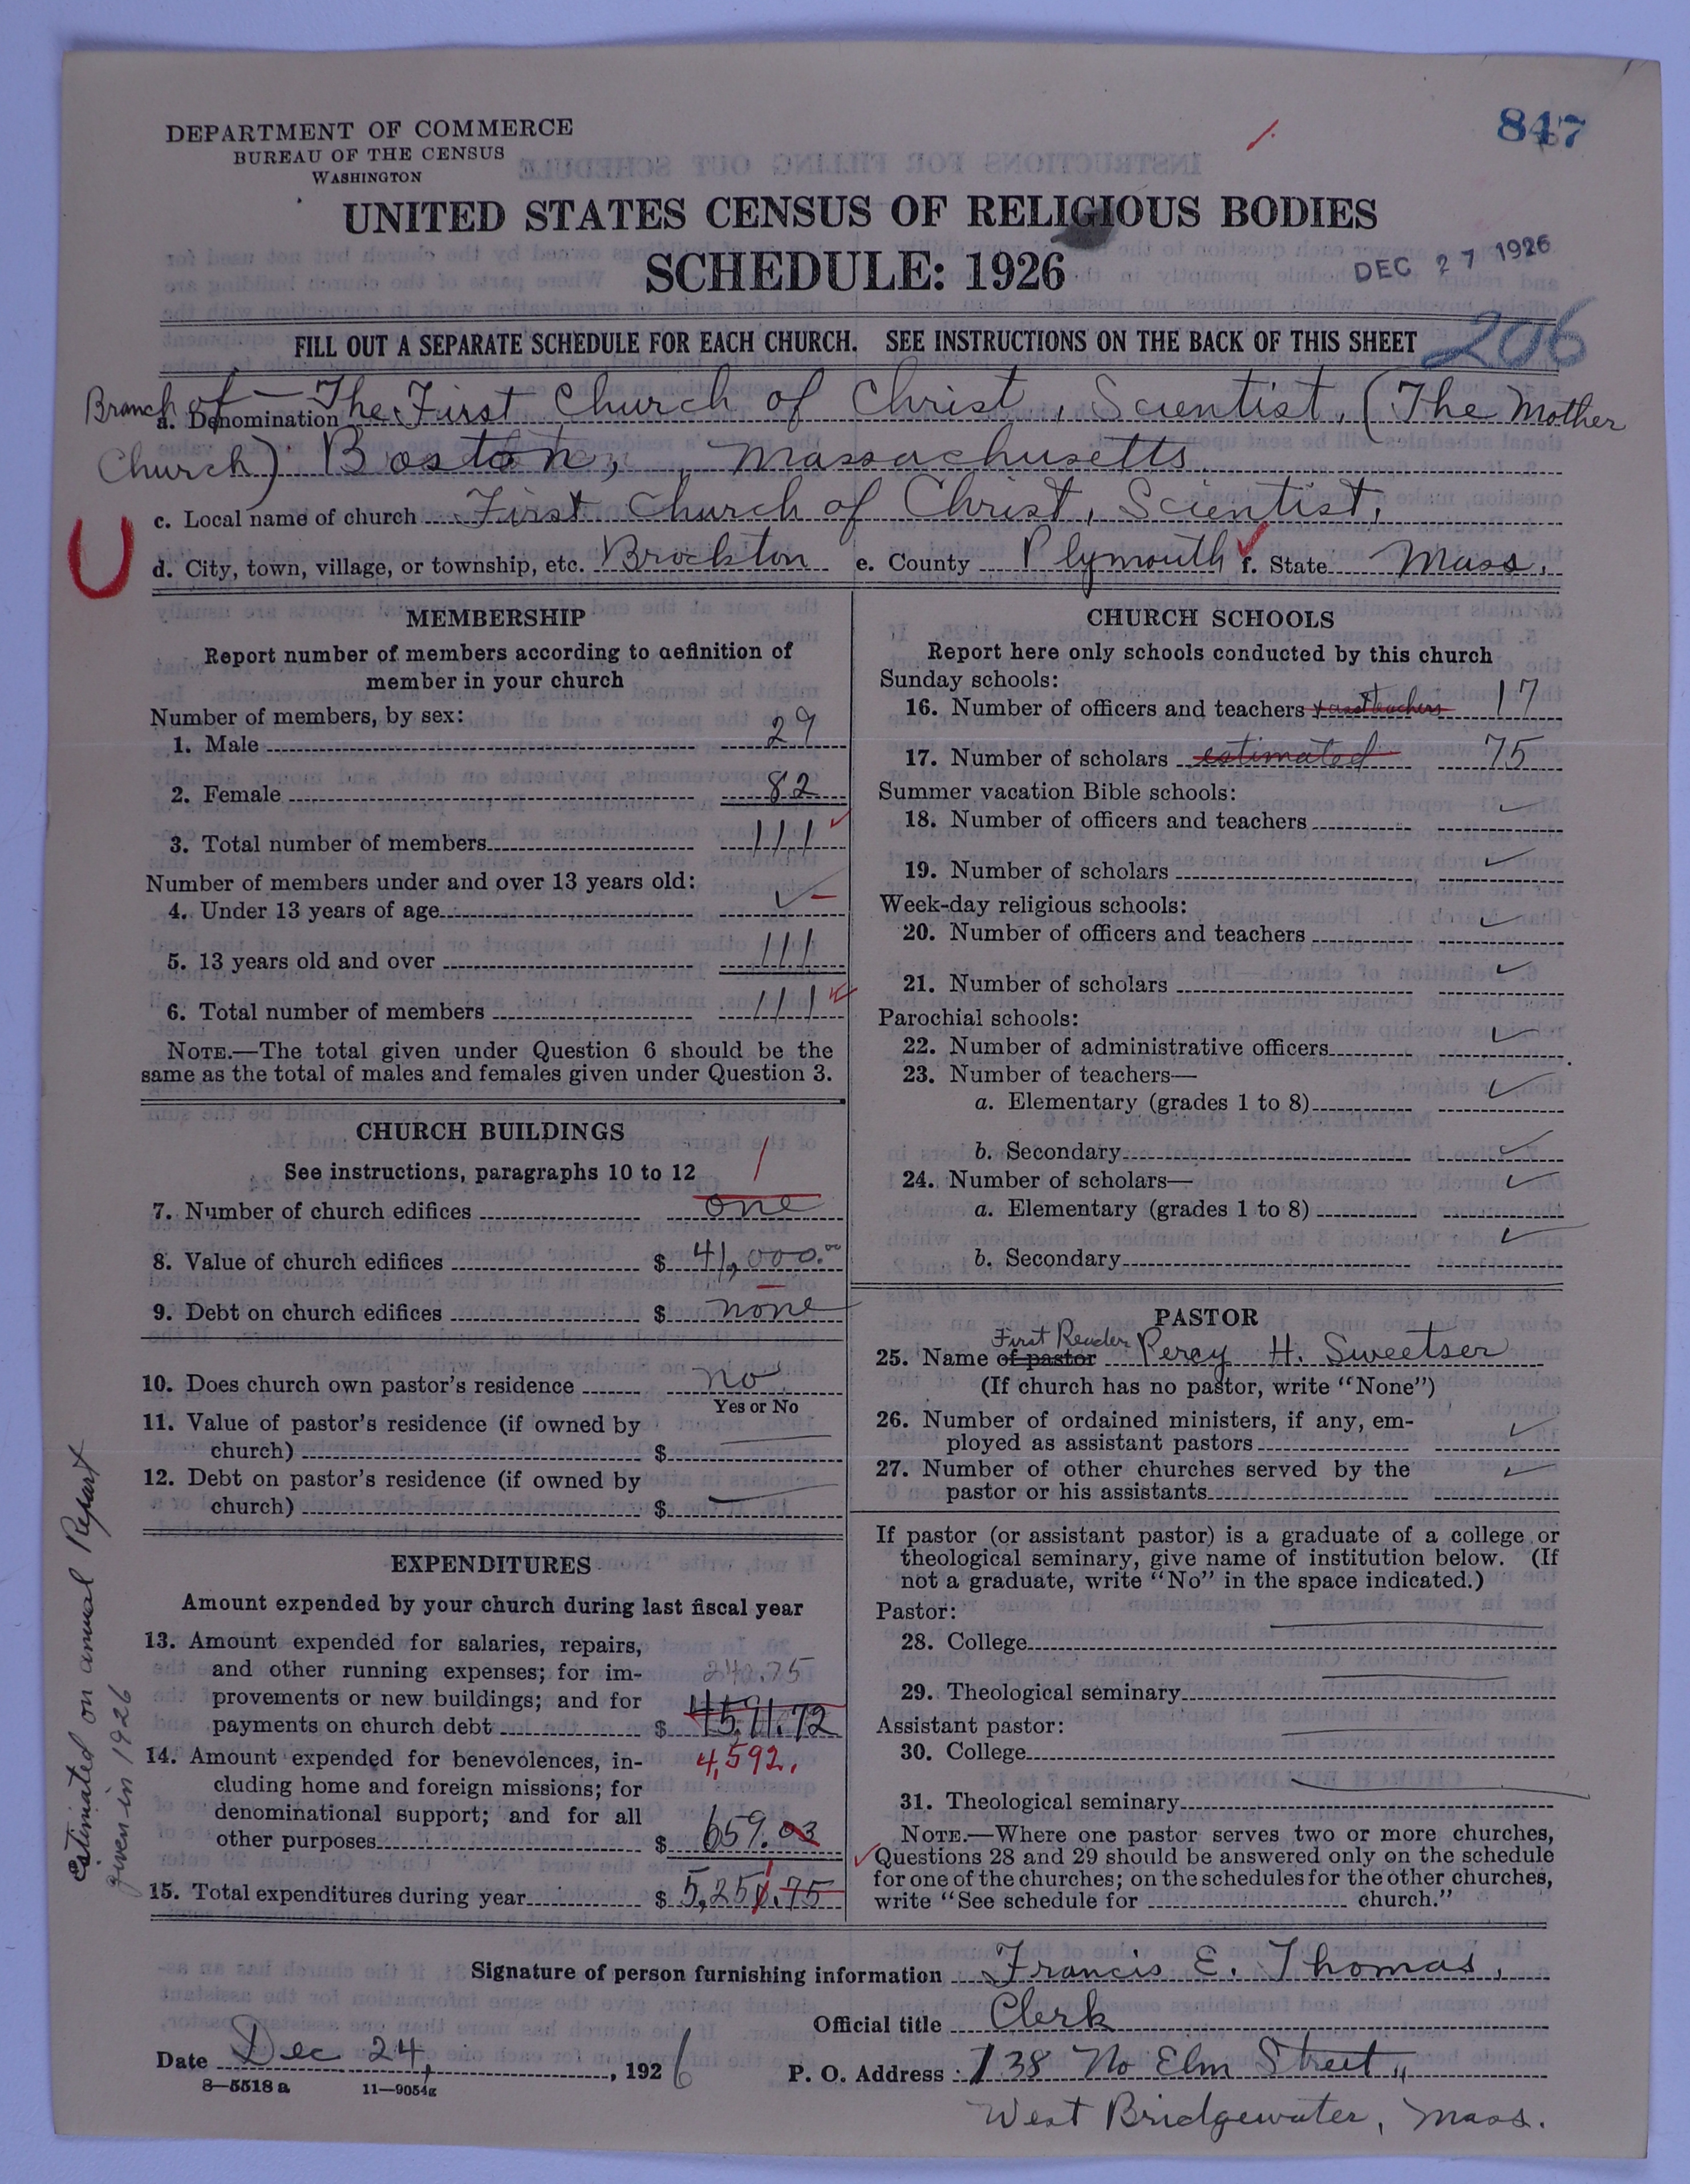 DEPARTMENT OF COMMERCE
BUREAU OF THE CENSUS
WASHINGTON
847
UNITED STATES CENSUS OF RELIGIOUS BODIES
SCHEDULE: 1926
DEC 27 1926
FILL OUT A SEPARATE SCHEDULE FOR EACH CHURCH. SEE INSTRUCTIONS ON THE BACK OF THIS SHEET
206
Branch of — The First Church of Christ, Scientist, (The Mother
a. Denomination
Church) Boston, Massachusetts
c. Local name of church First Church of Christ, Scientist,
d. City, town, village, or township, etc. Brockton e. County Plymouth f. State Mass.
MEMBERSHIP
Report number of members according to definition of
member in your church
Number of members, by sex:
1. Male 29
2. Female 82
3. Total number of members 111
Number of members under and over 13 years old:
4. Under 13 years of age –
5. 13 years old and over 111
6. Total number of members 111
NOTE.—The total given under Question 6 should be the
same as the total of males and females given under Question 3.
CHURCH BUILDINGS
See instructions, paragraphs 10 to 12
1
7. Number of church edifices one
8. Value of church edifices $ 41,000.00
9. Debt on church edifices $ none
10. Does church own pastor's residence no
Yes or No
11. Value of pastor's residence (if owned by
church) $
12. Debt on pastor's residence (if owned by
church) $
EXPENDITURES
Amount expended by your church during last fiscal year
13. Amount expended for salaries, repairs,
and other running expenses; for im-
240.75
provements or new buildings; and for
payments on church debt $ 4591.72
4,592.
14. Amount expended for benevolences, in-
cluding home and foreign missions; for
denominational support; and for all
other purposes $ 659.03
15. Total expenditures during year $ 5,251.75
Estimated on annual Report
given in 1926
CHURCH SCHOOLS
Report here only schools conducted by this church
Sunday schools:
16. Number of officers and teachers 17
17. Number of scholars estimated 75
Summer vacation Bible schools:
18. Number of officers and teachers
19. Number of scholars
Week-day religious schools:
20. Number of officers and teachers
21. Number of scholars
Parochial schools:
22. Number of administrative officers
23. Number of teachers—
a. Elementary (grades 1 to 8)
b. Secondary
24. Number of scholars—
a. Elementary (grades 1 to 8)
b. Secondary
PASTOR
First Reader
25. Name of pastor Percy H. Sweetser
(If church has no pastor, write "None")
26. Number of ordained ministers, if any, em-
ployed as assistant pastors
27. Number of other churches served by the
pastor or his assistants
If pastor (or assistant pastor) is a graduate of a college or
theological seminary, give name of institution below. (If
not a graduate, write "No" in the space indicated.)
Pastor:
28. College
29. Theological seminary
Assistant pastor:
30. College
31. Theological seminary
NOTE.—Where one pastor serves two or more churches,
Questions 28 and 29 should be answered only on the schedule
for one of the churches; on the schedules for the other churches,
write "See schedule for church."
Signature of person furnishing information Francis E. Thomas,
Official title Clerk
Date Dec 24, , 1926
P. O. Address 738 No Elm Street,
8—5518a 11—9054g
West Bridgewater, Mass.